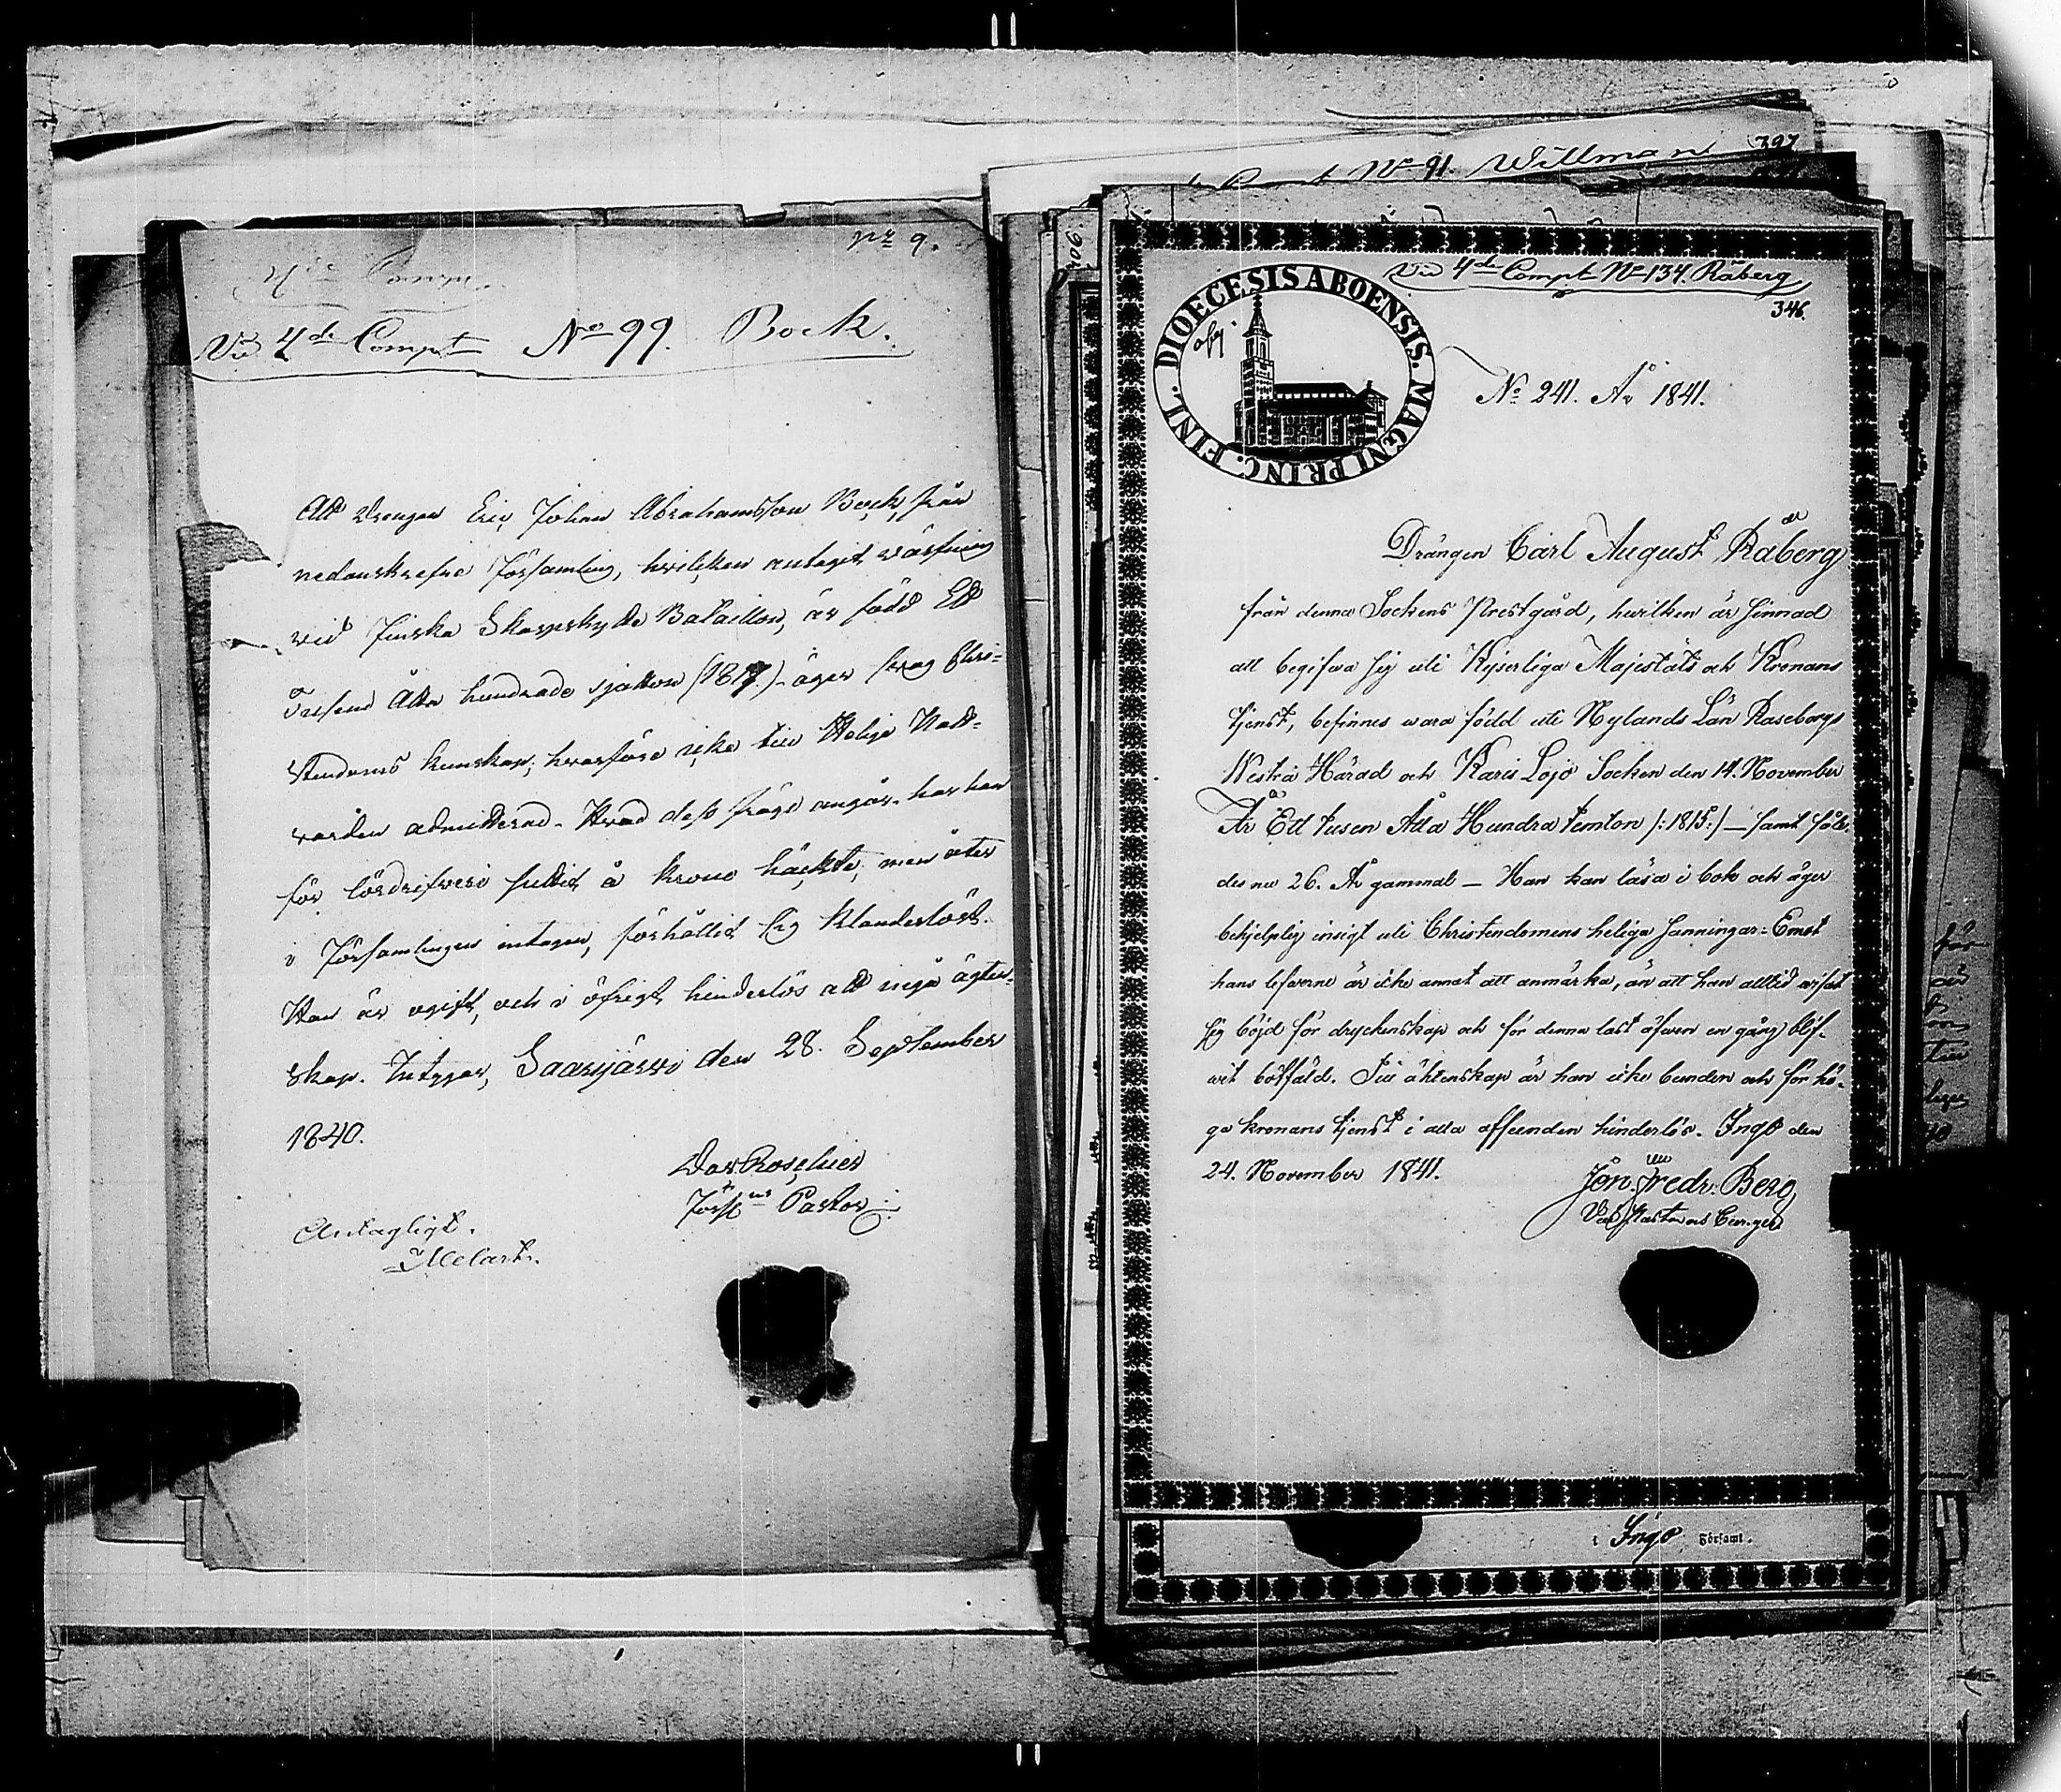 No 9.
4de Comp.
Vid 4de Compt No 99. Bock.
Att Drengen Eric Johan Abrahamsson Bock, från
nedanskrefne Församling, hvilcken antagit värfning
vid Finska Skarpskytte Bataillon, är född Ett
Tusend Åtta hundrade sjutton (1817.) - äger svag Chri-
stendoms kunskap, hvarföre icke till Helige Natt-
varden admitterad. Hvad dess frägd angår, har han
för lösdrifveri suttit å krono häckte; men åter
i Församlingen intagen, förhållit sig klanderlöst.
Han är ogift, och i öfrigt hinderlös att ingå ägten-
skap. Intygar, Saarijärvi den 28. September
1840.
Dav Roschier
Förs:ns Pastor
Antagligt.
Melart.
Compt No 91. Willman 397
406.
Vid 4de Compt No 134. Råberg
346.
DIOECESIS ABOENSIS. MAGNI PRINC. FINL.
afg
No 241. År 1841.
Drängen Carl August Råberg
från denna Sockens Prestgård, hvilken är sinnad
att begifwa sig uti Kejserliga Majestäts och Kronans
tjenst, befinnes wara född uti Nylands Län Raseborgs
Westra Härad och Karis Lojo Socken den 14. November
År Ett tusen Åtta Hundra femton /:1815:/ — samt såle-
des nu 26. År gammal — Han kan läsa i bok och äger
behjelplig insigt uti Christendomens heliga sanningar - Emot
hans lefwerne är icke annat att anmärka, än att han alltid wisat
sig böjd för dryckenskap och för denna last äfwen en gång blif-
wit bötfäld. Till äktenskap är han icke bunden och för hö-
ga kronans tjenst i alla afseenden hinderlös. Ingo den
24. November 1841.
Jon. Fredr. Berg
Vice Pastor
i Ingo Församl.